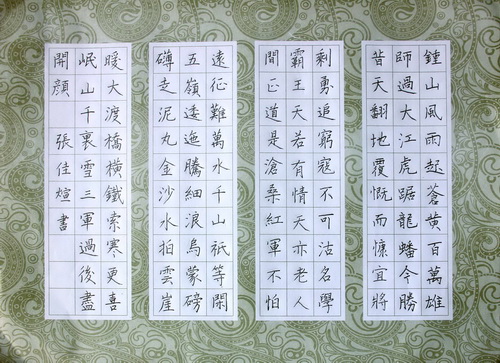 鍾山風雨起蒼黄百萬雄
師過大江虎踞龍蟠今勝
昔天翻地覆慨而慷宜將
剩勇追窮寇不可沽名學
霸王天若有情天亦老人
間正道是滄桑紅軍不怕
遠征難萬水千山衹等閑
五嶺逶迤騰細浪烏蒙磅
礴走泥丸金沙水拍雲崖
暖大渡橋橫鐵索寒更喜
岷山千裏雪三軍過後盡
開顔 張佳煊書